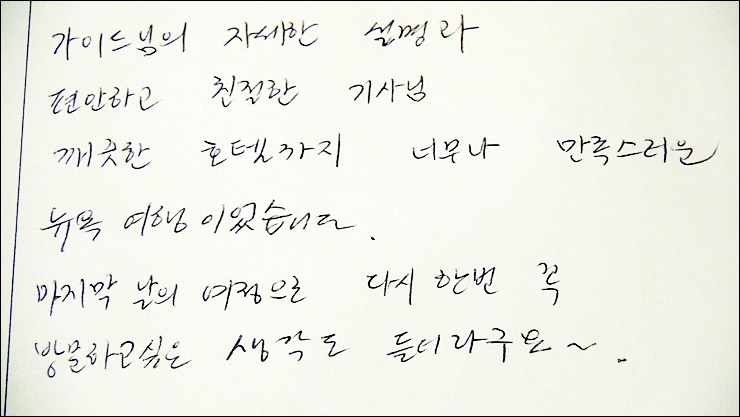 가이드님의 자세한 설명과
편안하고 친절한 기사님
깨끗한 호텔까지 너무나 만족스러운
뉴욕 여행이었습니다.
마지막 날의 여정으로 다시 한번 꼭
방문하고싶은 생각도 들더라구요~.